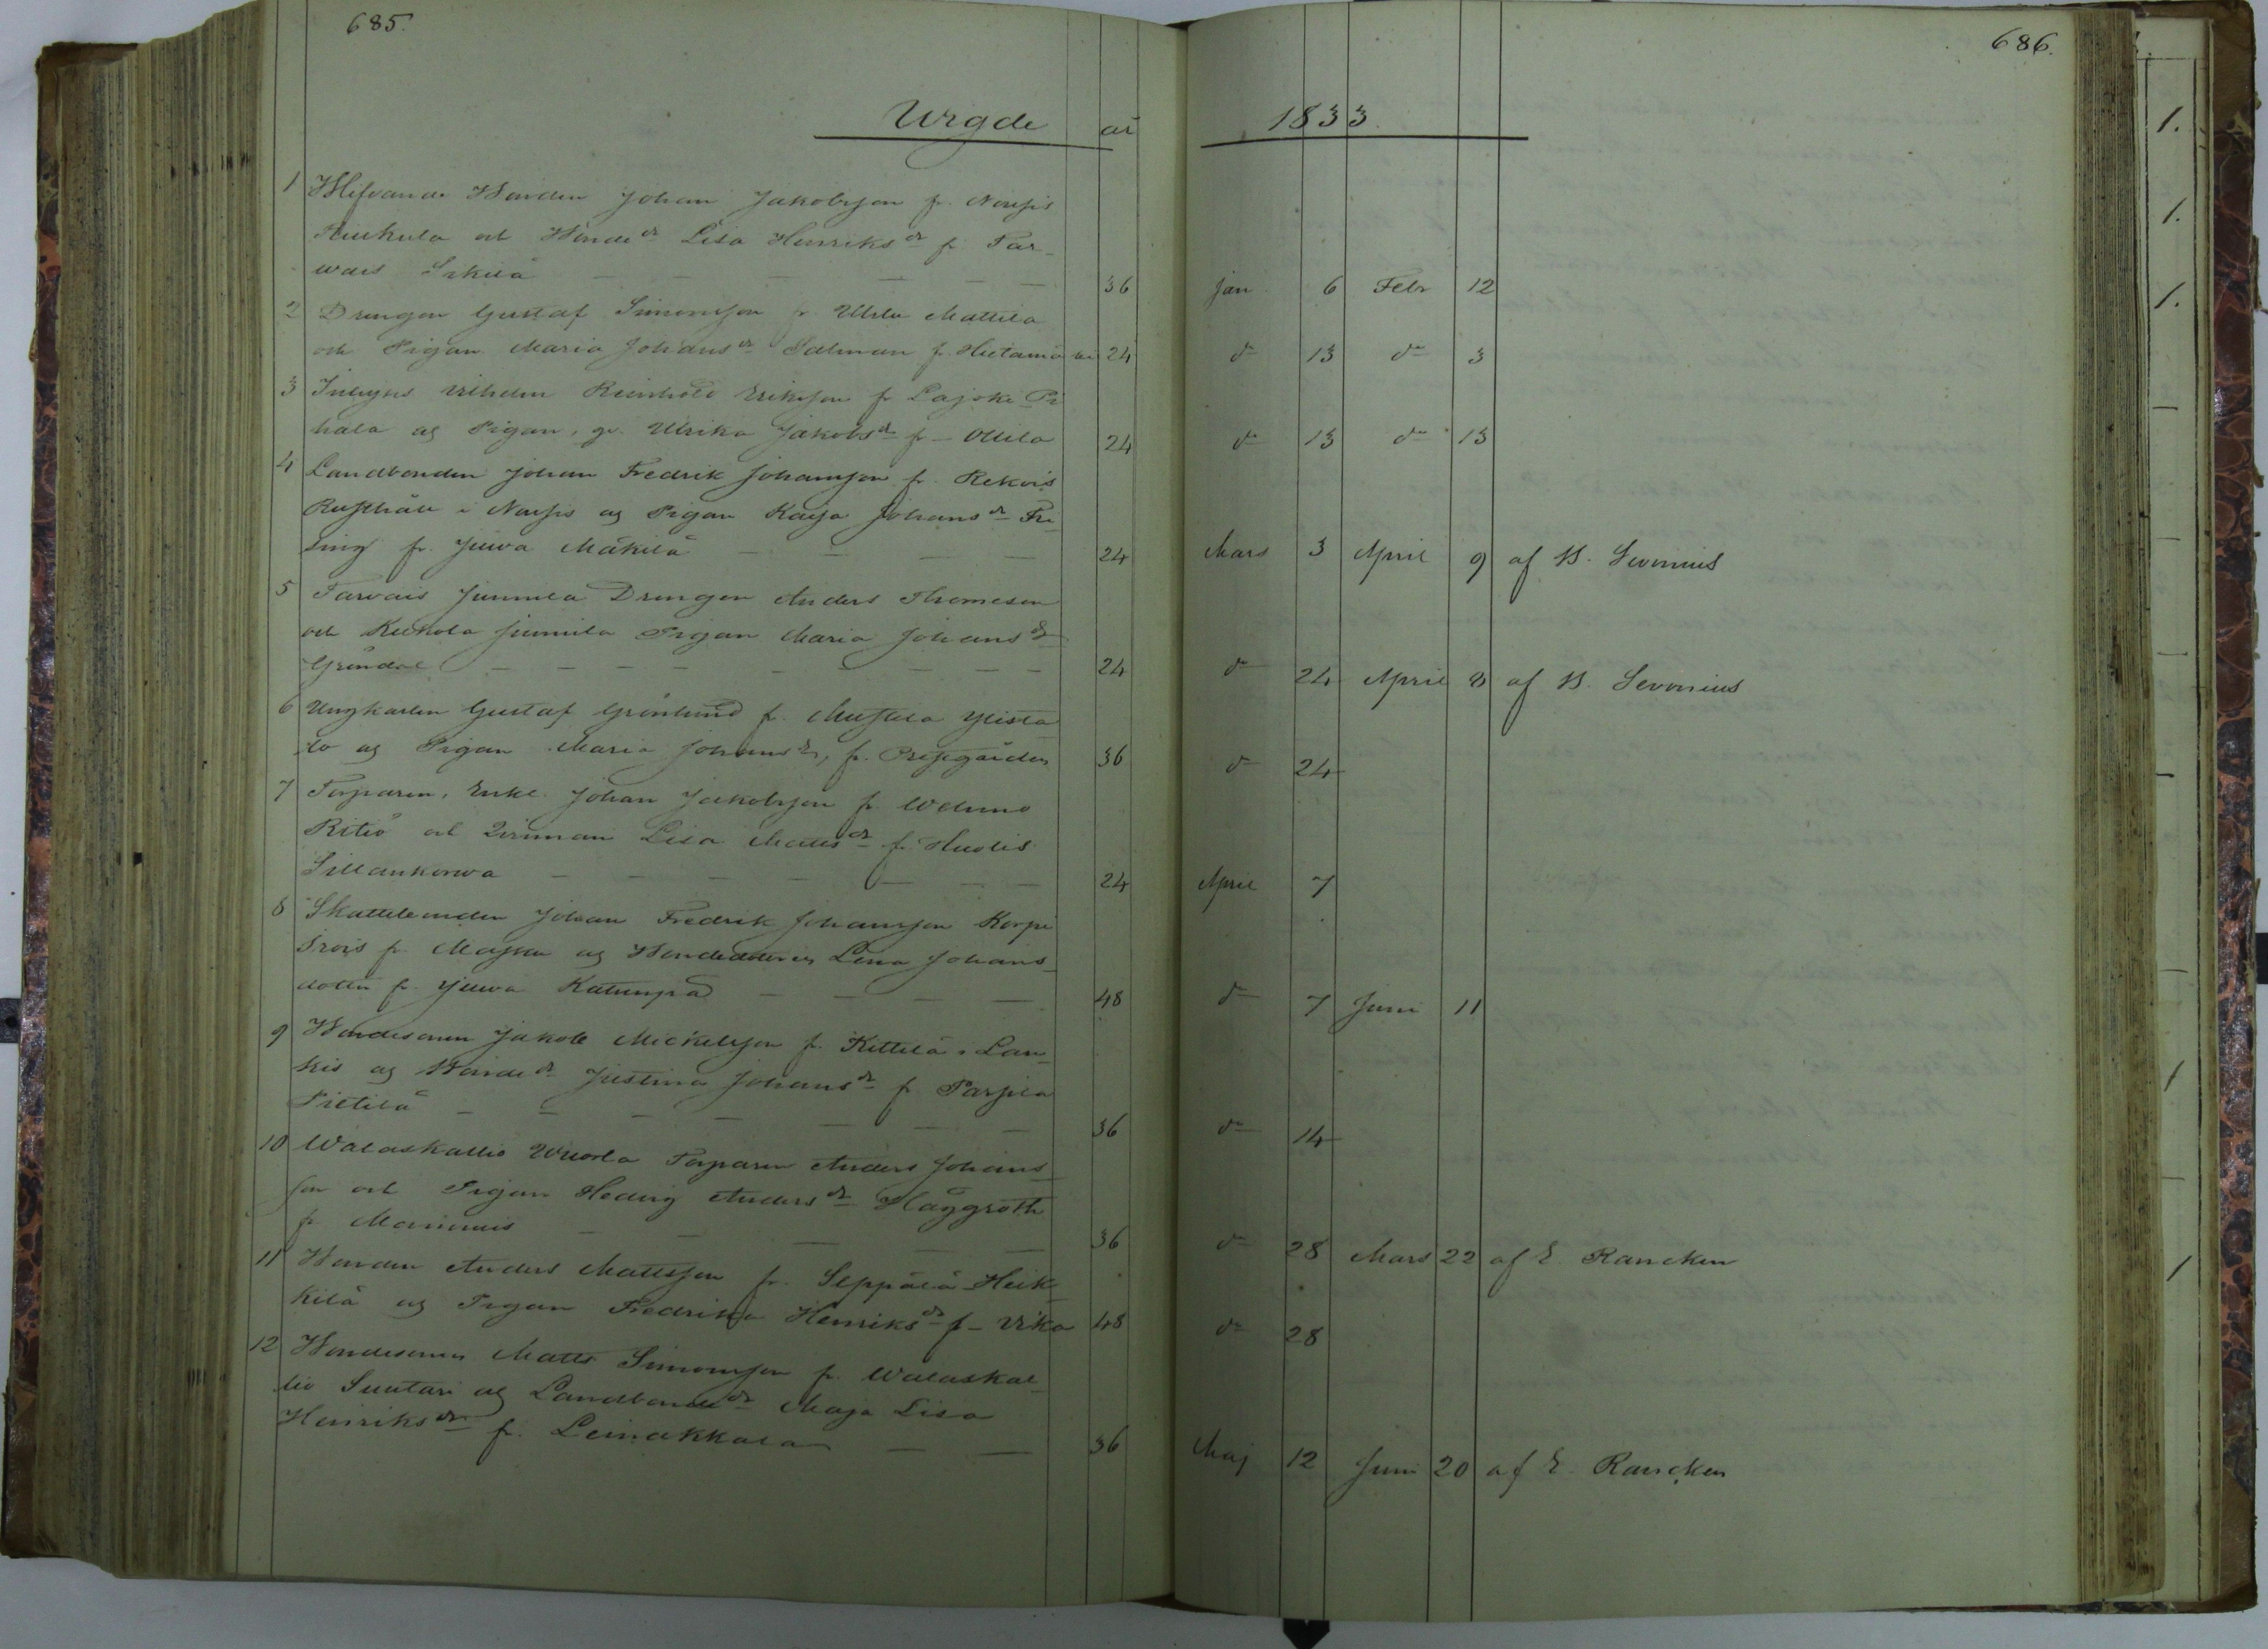 685.
686.
Wigde år 1833.
1 Blifvande Bonden Johan Jakobsson fr. Nousis
Kiukula och Bonde dr Lisa Henriks dr fr. Tar-
wais Sikilä — 36 Jan. 6 Febr 12
2 Drengen Gustaf Simonsson fr Uhlu Mattila
och Pigan Maria Johans dr Salman fr. Hietamä 24 do 13 do 3
3 Inhyses Vilhelm Reinhold Eriksson fr Lajoki Pi
hala ag Pigan, gv. Ulrika Jakobs dr fr — Ollila 24 do 13 do 13
4 Landbonden Johan Fredrik Johansson fr. Rekois
Rusthåll i Nousis ag Pigan Kajsa Johans dr Fri
sing fr. Juwa Mäkilä — 24 Mars 3 April 9 af B. Levonius
5 Tarvais Junnila Drengen Anders Thomeson
och Kukola Junnila Pigan Maria Johans dr
Gröndal — 24 do 24 April 8 af B. Levonius
6 Ungkarlen Gustaf Grönlund fr. Mustila Ylista
lo ag Pigan Maria Johans dr, fr. Prestgården 36 do 24
7 Torparen, Enkl. Johan Jakobsson fr. Wehmo
Ritiö och Qvinnan Lisa Matts dr fr. Huolis
Sillankorwa — 24 April 7
8 Skattebonden Johan Fredrik Johansson Korpi
Irois fr. Masku ag Bondedottren Lena Johans-
dotter fr. Juwa Katunpää — 48 do 7 Juni 11
9 Bondesonen Jakob Mickelsson fr. Kittilä, Lan-
kis ag Bonde dr Justina Johans dr fr Parsila
Pietilä — 36 do 14
10 Walaskallio Wuorla Torparen Anders Johans-
son och Pigan Hedvig Anders dr Häggroth
fr. Mannuis — 36 do 28 Mars 22 af E. Rancken
11 Bonden Anders Mattsson fr. Seppälä Heik-
kilä ag Pigan Fredrika Henriks dr fr — Vika 48 do 28
12 Bondesonen Matts Simonsson fr. Walaskal-
lio Suutari ag Landbonde dr Maja Lisa
Henriks dr fr. Leinakkala — 36 Maj 12 Juni 20 af E. Rancken